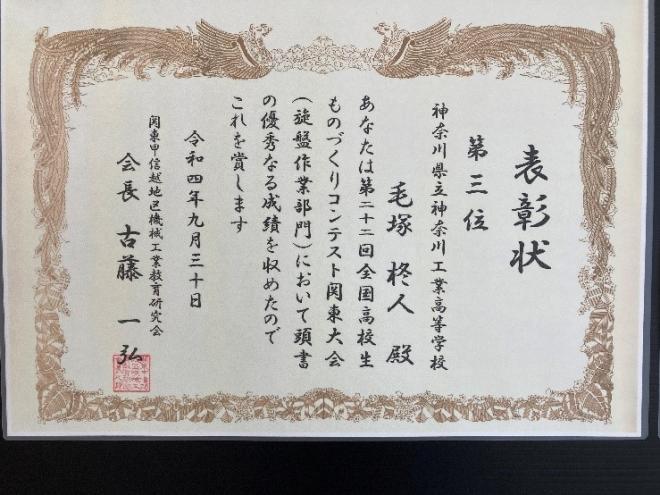 表彰状
第三位
神奈川県立神奈川工業高等学校
毛塚柊人殿
あなたは第二十二回全国高校生
ものづくりコンテスト関東大会
(旋盤作業部門)において頭書
の優秀なる成績を収めたので
これを賞します
令和四年九月三十日
関東甲信越地区機械工業教育研究会
会長 古藤一弘